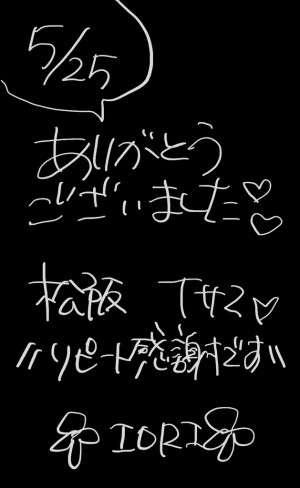 5/25
ありがとう
ございました♡♡
松阪 Tサマ♡
〃リピート感謝です〃
IORI